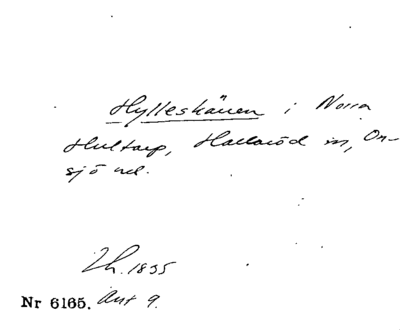 Hylleskären i Norra
Hultarp, Hallaröd sn, On-
sjö hd.
Lh. 1835
Nr 6165. Akt 9.